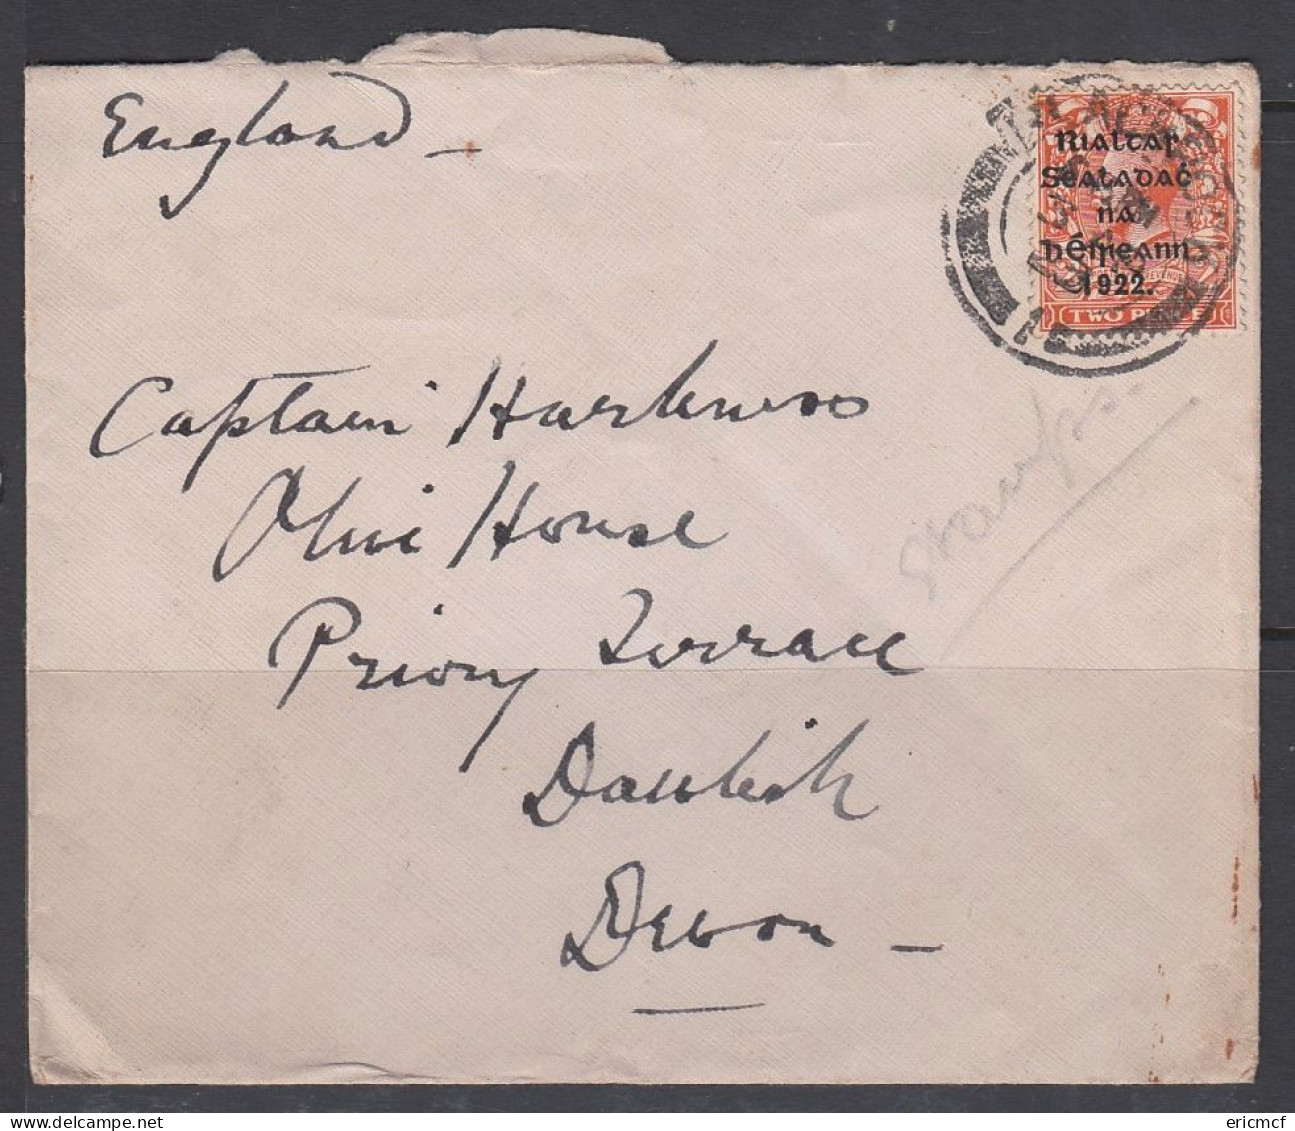 England —
Rialtas
Sealadaċ
na
hÉireann
1922.
TWO PENCE
Captain Harkness
Olive House
Priory Terrace
Dawlish
Devon —
stamps.
ericmcf